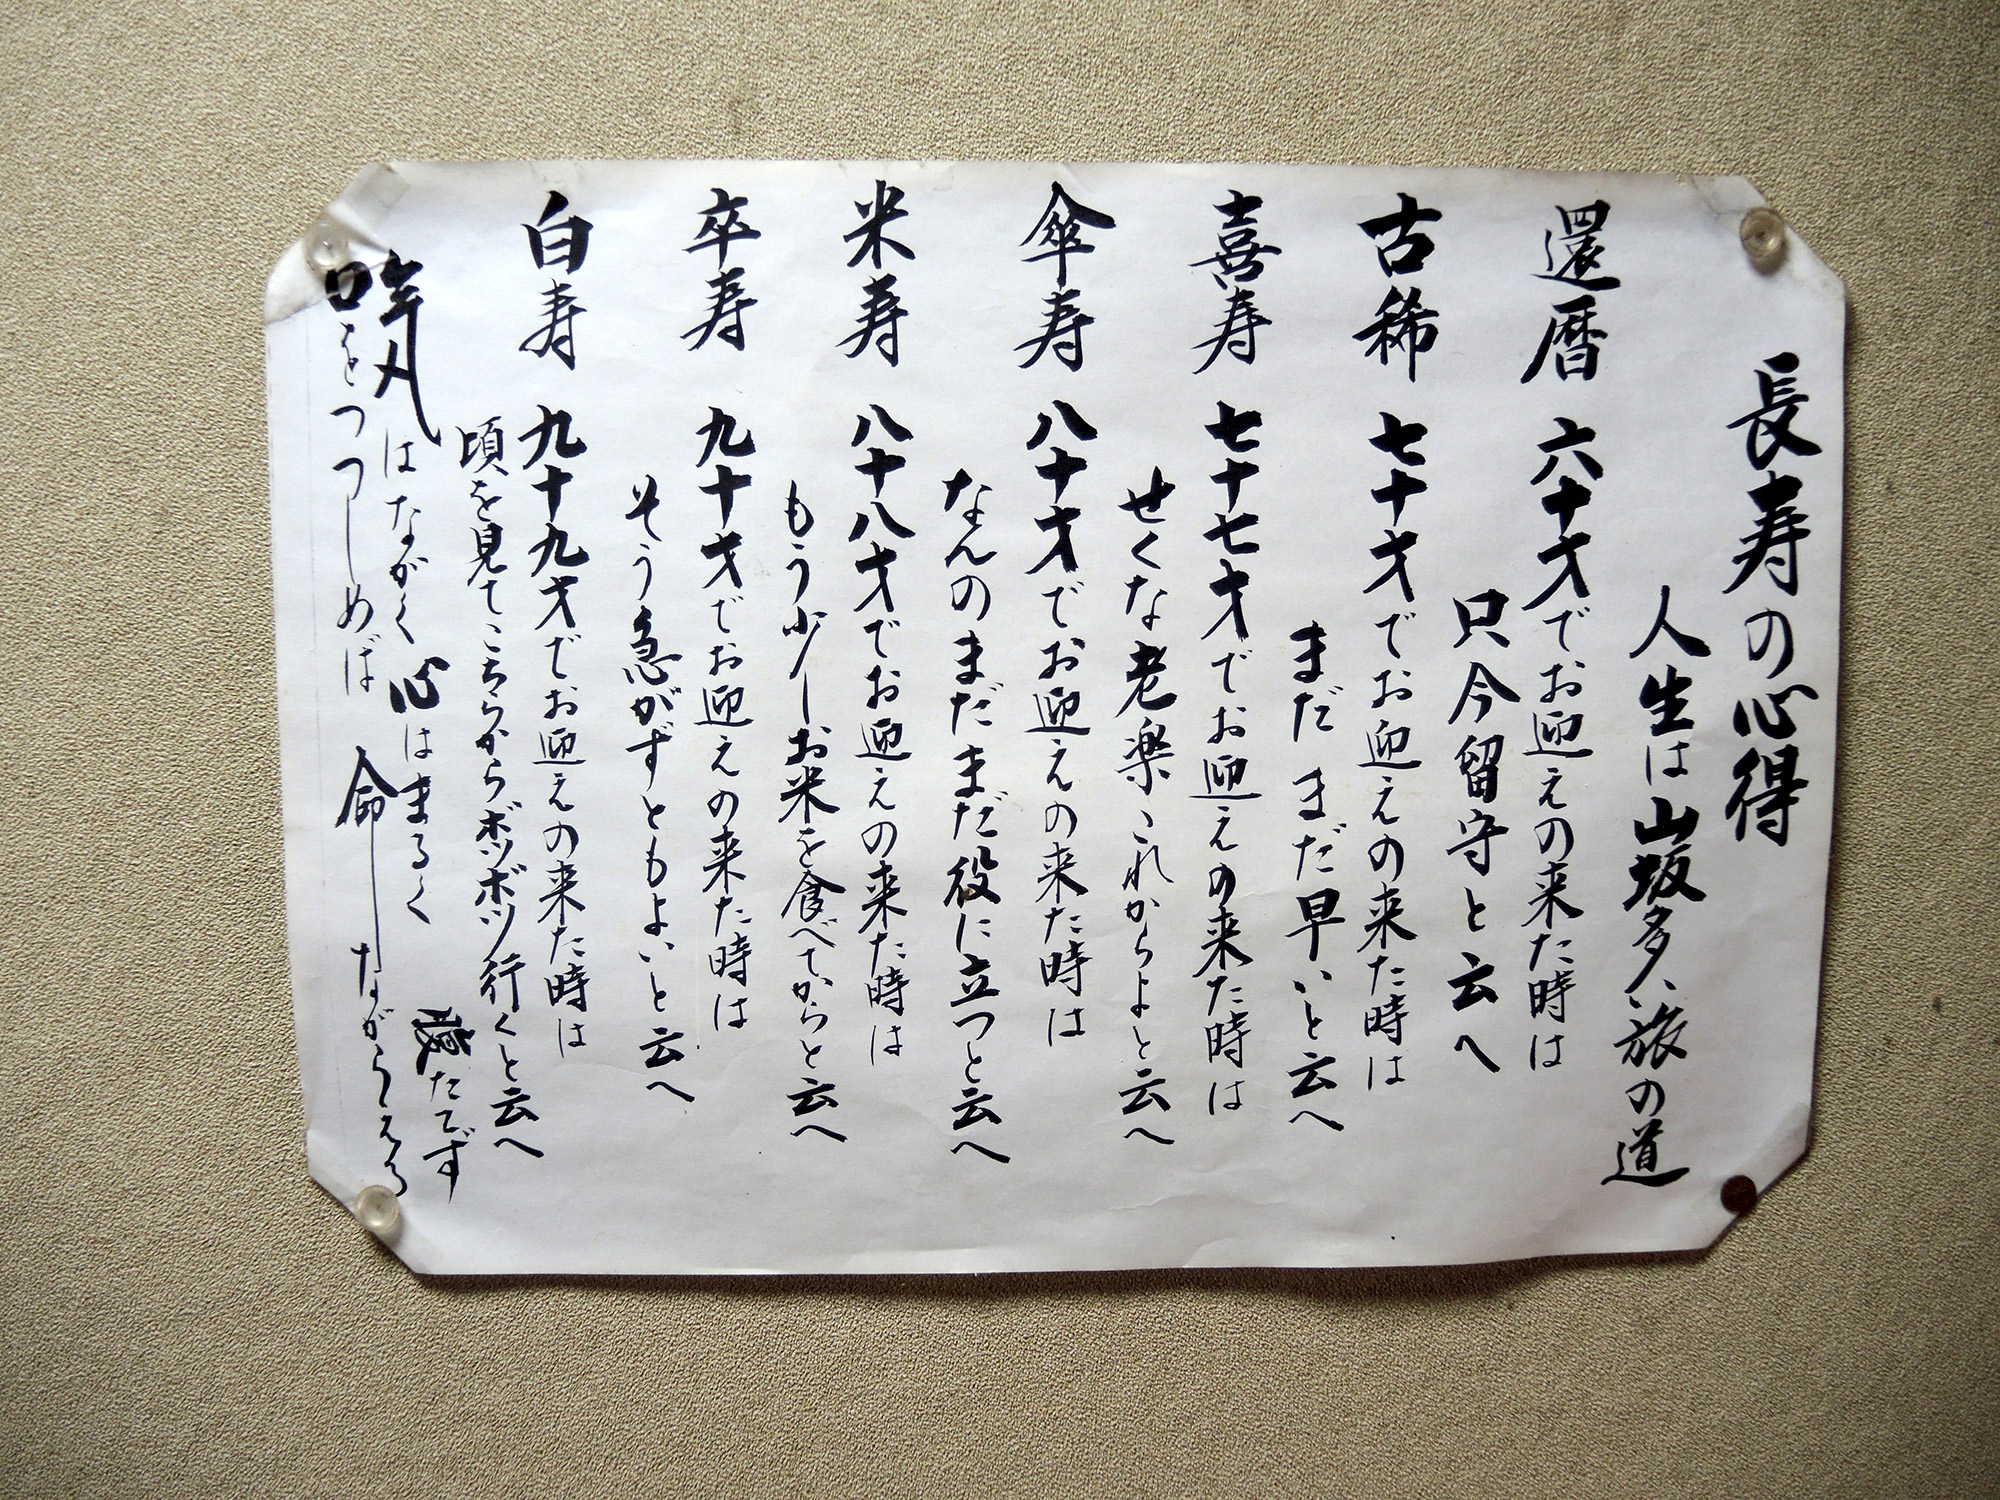 長寿の心得
人生は山坂多い旅の道
還暦 六十才でお迎えの来た時は
只今留守と云へ
古稀 七十才でお迎えの来た時は
まだまだ早いと云へ
喜寿 七十七才でお迎えの来た時は
せくな老楽これからよと云へ
傘寿 八十才でお迎えの来た時は
なんのまだまだ役に立つと云へ
米寿 八十八才でお迎えの来た時は
もう少しお米を食べてからと云へ
卒寿 九十才でお迎えの来た時は
そう急がずともよいと云へ
白寿 九十九才でお迎えの来た時は
頃を見てこちらからボツボツ行くと云へ
気はながく 心はまるく 腹たてず
口をつつしめば 命ながらえる